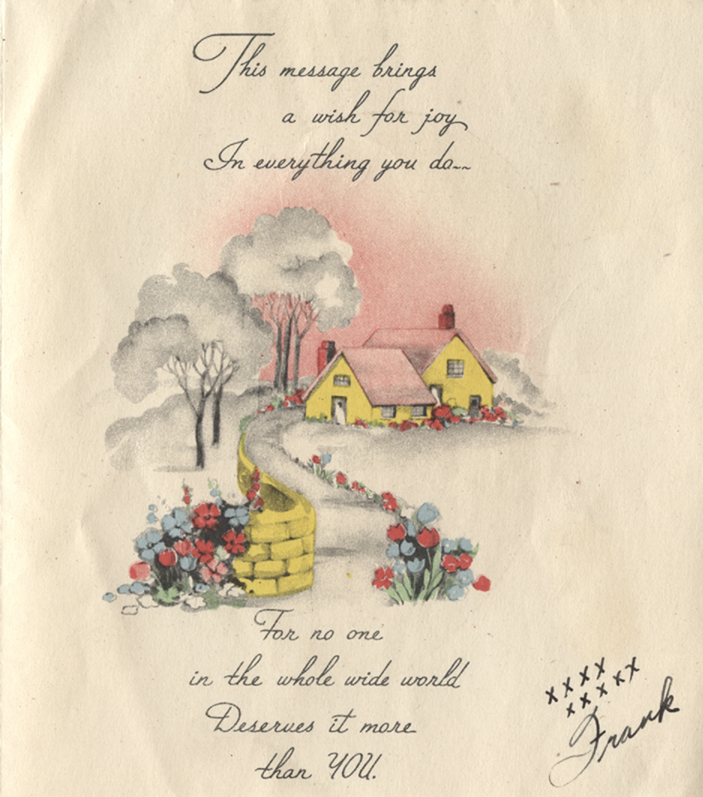 This message brings
a wish for joy
In everything you do--
For no one
in the whole wide world
Deserves it more
than YOU.
xxxx
xxxxx
Frank